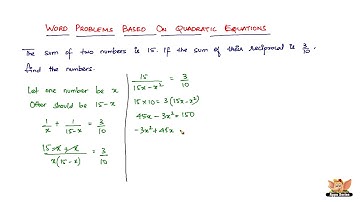 Word Problems Based On Quadratic Equations
The sum of two numbers is 15. If the sum of their reciprocal is 3/10,
find the numbers.
Let one number be x
Other should be 15-x
1/x + 1/15-x = 3/10
15-x+x/x(15-x) = 3/10
15/15x-x² = 3/10
15x10 = 3(15x-x²)
45x - 3x² = 150
-3x² + 45x